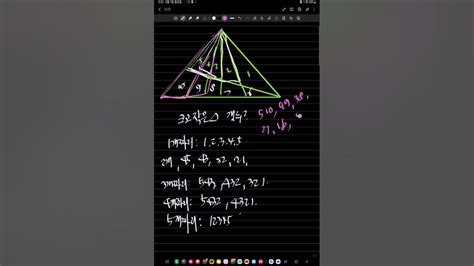 5 4 3 2 1
10 9 8 7 6
크고작은 △ 갯수?
510, 49, 38,
27, 16,
1개짜리: 1.2.3.4.5
2개, 45, 43, 32, 21,
3개짜리: 543, 432, 321.
4개짜리: 5432, 4321.
5개짜리: 12345